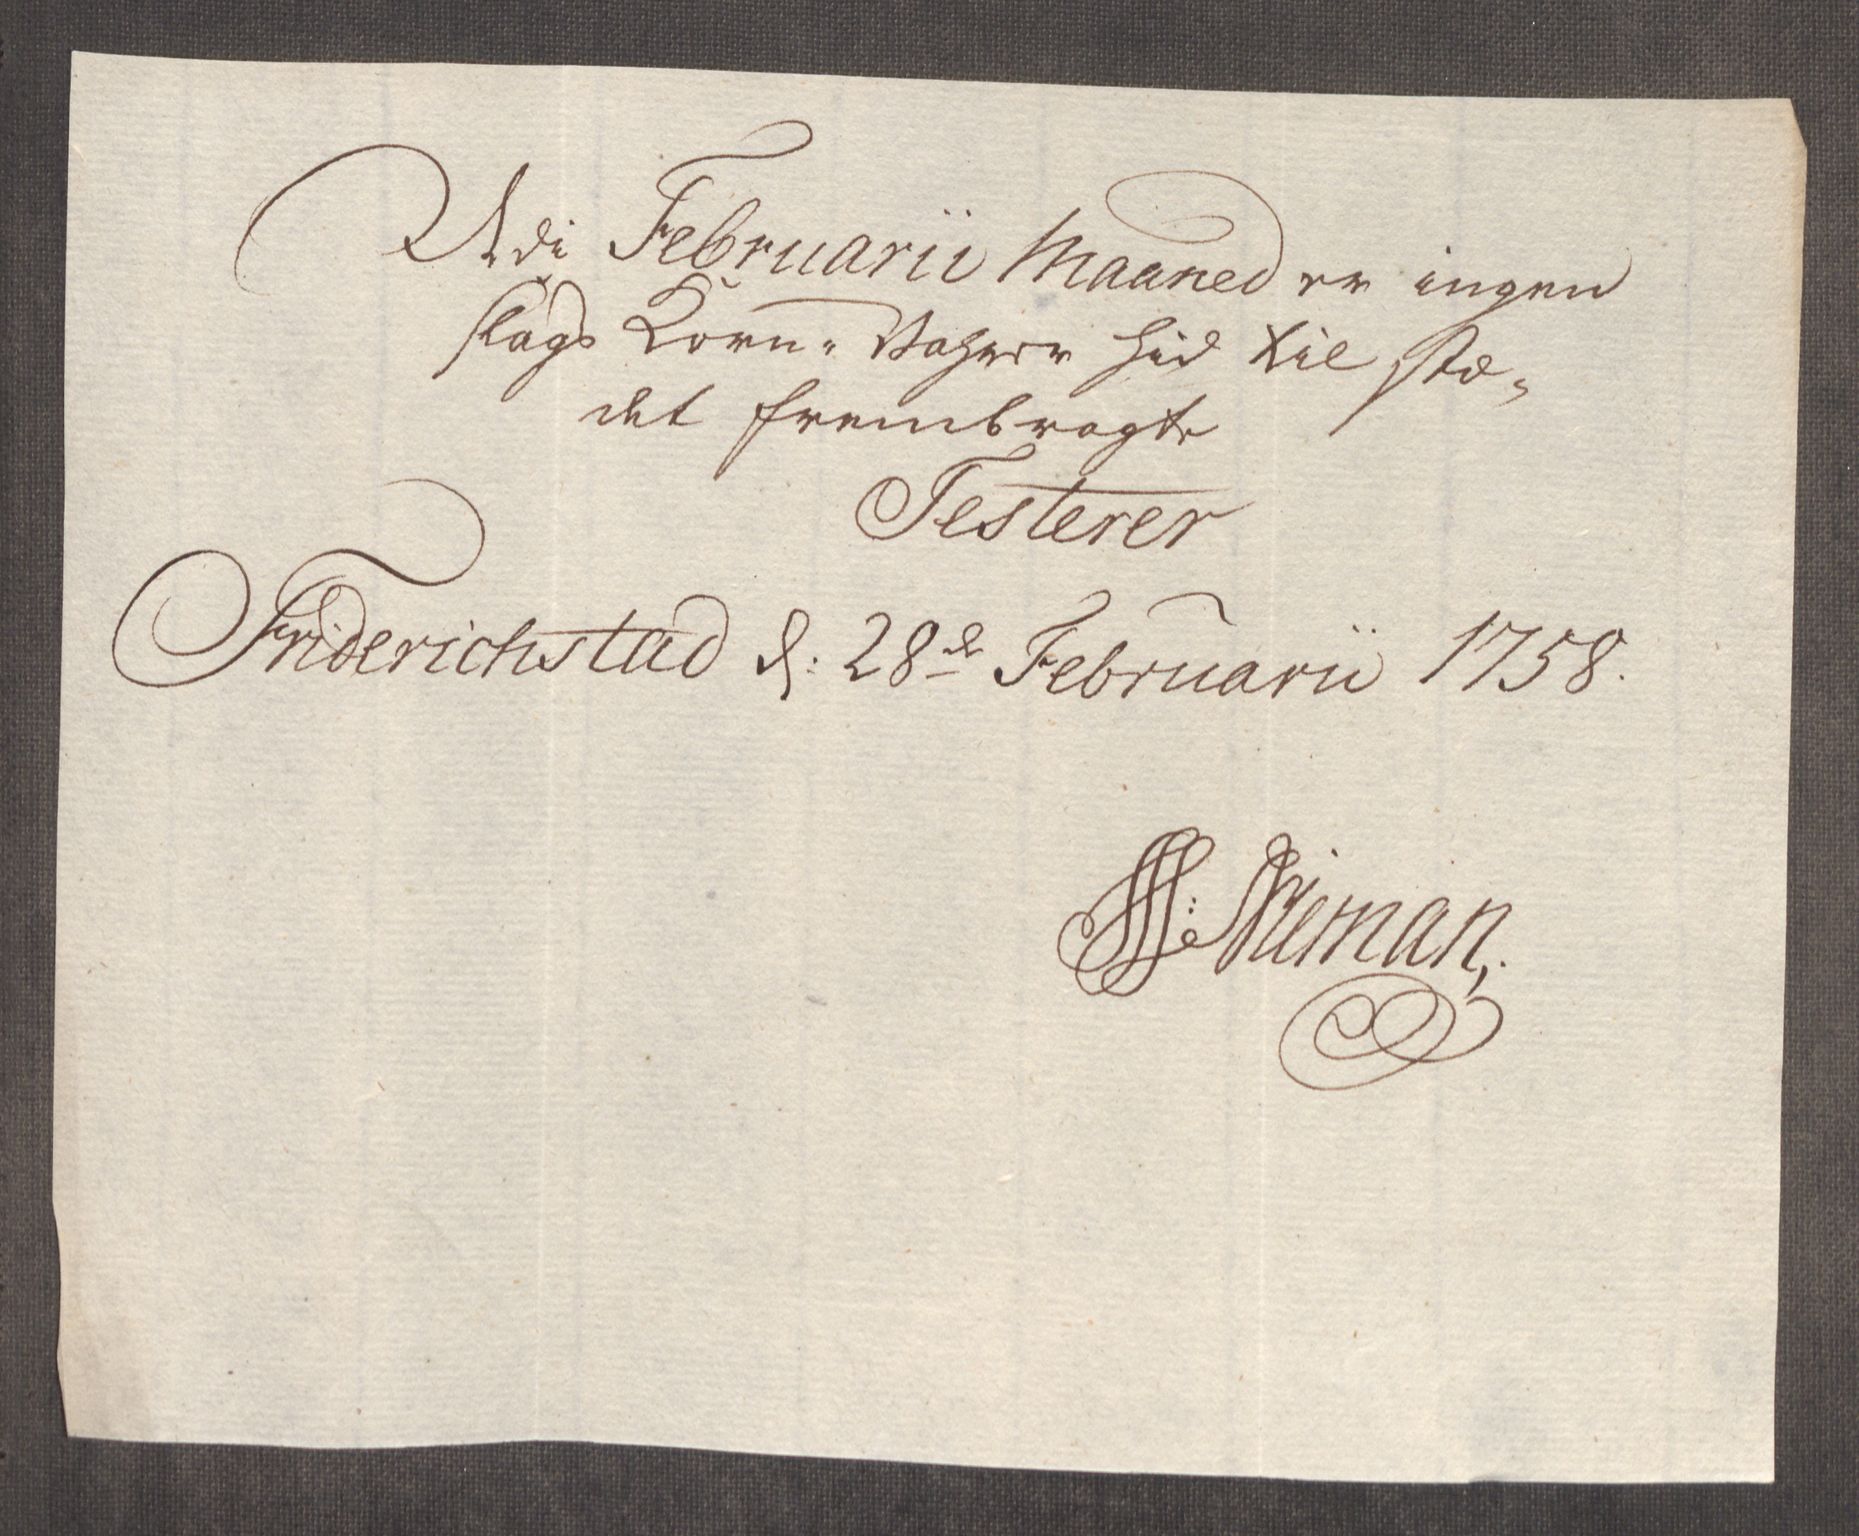 Udi Februarii Maaned er ingen
slags Korn-Vahrer hid til sta-
det frembragt
Testerer
Friderichstad d: 28de Februarii 1758.
Niman,